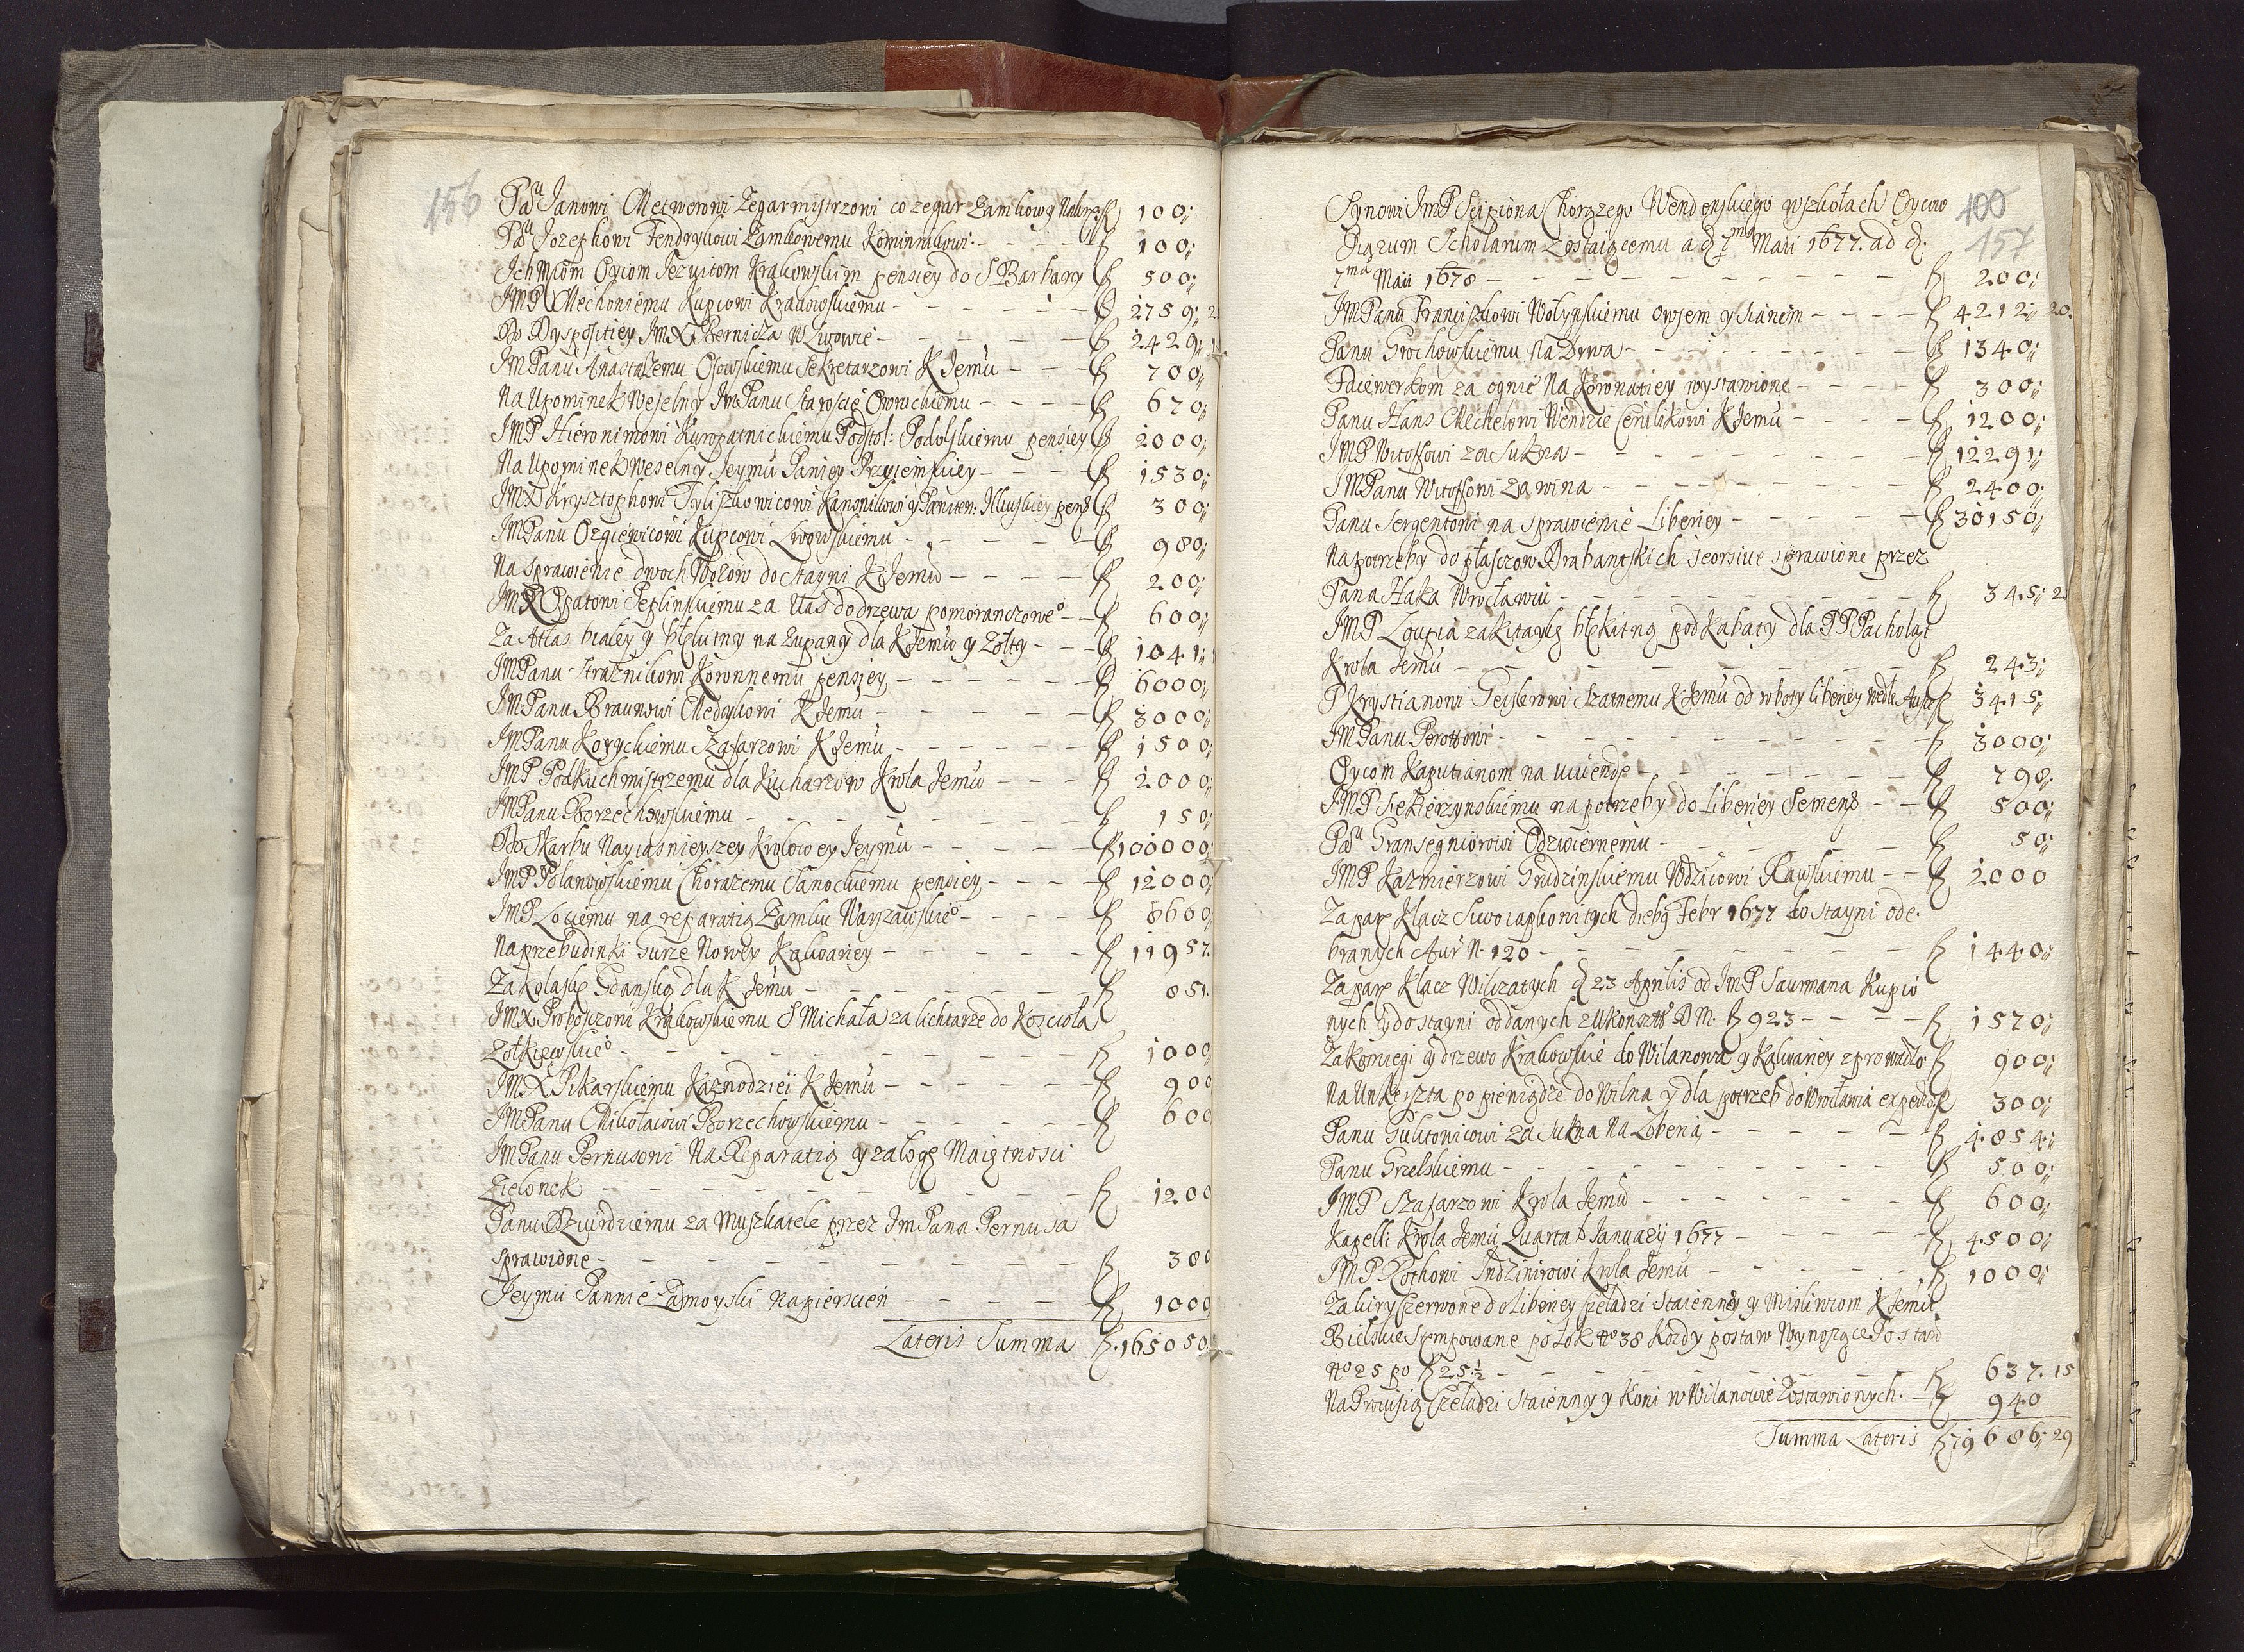 156
Pa͠u Janowi Metwerowi Zegarmistrzowi co zegar Zamkowy f 100
Pa͠u Jozephowi Fendrykowi Zamkowemu Kominnikowi f 100
Ich Mꝺiom Oycom Jezuitom Krakowskim pensiey do S Barbary f 500
JMP Mechoniemu Kupcowi Krakowskiemu f 2759
Do Dyspositiey JmX Bernicza W Lwowie f 2429
JmPanu Anastazemu Osowskiemu Sekretarzowi K Jemu f 700
Na Upominek Weselny JmPanu Staroscie Owruckiemu f 670
JMP Hieronimowi Kuropatnickiemu Podstol: Podolskiemu pensiey f 2000
Na Upominek Weselny Jeymu Paniey Przyiemskiey f 1530
JMX Krysztophowi f 300
JMPanu Ozgiewicowi Kupcowi Lwowskiemu f 980
Na sprawienie dwoch Wozow do Stayni K Jemu f 200
JMX Opatowi Peplinskiemu za Uas do drzewa pomoranczoweo f 600
Za Atlas bialey y błekitny na Zupany dla K Jemu y Zołty f 1041
JMPanu Straznikowi Koronnemu pensiey f 6000
JMPanu Braunowi Medykowi K Jemu f 3000
JMPanu Koryckiemu Szafarzowi K Jemu f 1500
JMP Podkuchmistrzemu dla Kucharzow Krola Jemu f 2000
JMPanu Borzechowskiemu f 150
Do Skarbu Nayiasnieyszey Krolowey Jeymu f 100000
JMP Polanowskiemu Chorazemu Sanockiemu pensiey f 12000
JMP Lociemu na reparatią Zamku Warszawskieo f 8600
Na przebudinki Gurze Nowey Kalwariey f 11957
Za Kolaskę Gdanską dla K Jemu f 851
JMX Proboszczowi Krakowskiemu S Michała za lichtarze do Koscioła
Zołkiewskieo f 1000
JMX Pikarskiemu Kaznodzieii K Jemu f 900
JMPanu Mikołaiowi Borzechowskiemu f 600
JMPanu Pernusowi Na Reparatią y załogę Maiętnosci
Zielonek f 1200
Panu za Muszkatele przez JmPana Pernusa
sprawione f 300
Jeymu Pannie Zamoyski na piersċień f 1000
Lateris Summa f. 165050
400
157
Synowi JmP Scipiona Chorązego Wendenskiego w szkołach Oycow
Piarum Scholarum zostaiącemu a d 7ma Maii 1677. ad d.
7ma Maii 1678 f 200
JMPanu Franciszkowi Wołynskiemu owsem y sianem f 4212 20.
Panu Grochowskiemu Na Drwa f 1340
Faiewerkom za ognie Na Koronatiey wystawione f 300
Panu Hans Mechelowi Wendzie Cerulikowi K Jemu f 1200
JMP Witoffowi za Sukna f 12291
JMPanu Witoffowi za wina f 2400
Panu Sergentowi na sprawienie Liberiey f 30150
Na potrzeby do płaszczow Drabantskich seorsive sprawione przez
Pana Haka Wrocławiu f 345 2
JMP Loupia za kitaykę błękitną pod Kabaty dla PP Pacholąt
Krola Jemu f 243
P Krystianowi Geislerowi Szatnemu K Jemu od roboty liberiey f 3415
JMPanu Perottowi f 3000
Oycom Kaputianom na f 798
JMP Siekierzynskiemu na potrzeby do Liberiey Semens f 500
Pa͠u Gransegniorowi Odzwiernemu f 50
JMP Kazmierzowi Grudzinskiemu Wdzicowi Rawskiemu f 2000
Za parę Klacz Febr 1677 do stayni ode-
branych Aur N. 120 f 1440
Za parę Klacz Wilczatych d 23 Aprilis od JmP Saurmana Kupio
nych y do stayni oddanych f 923 f 1570
Za y drzewo Krakowskie do Wilanowa y Kalwariey f 900
Na Unkoszta po pieniądze do Wilna y dla potrzeb do Wrocławia f 300
Panu Gulitowicowi za Sukna Na f 4854
Panu Grzelskiemu f 500
JMP Szafarzowi Krola Jemu f 600
Kapelli Krola Jemu Quarta Januarij 1677 f 4500
JMP Rothowi Indzinirowi Krola Jemu f 1000
Za kiry Czerwone do Liberiey Czeladzi Staienney y Misliwcom K Jemu
Bielskie Stempowane po Łok No 38 Kozdy postaw Wynoszące Postaw
No 25 po f 25½ f 637. 15
Na Prowisią Czeladzi Staienney y Koni w Wilanowie Zostawionych. f 940
Summa Lateris f 79686 29